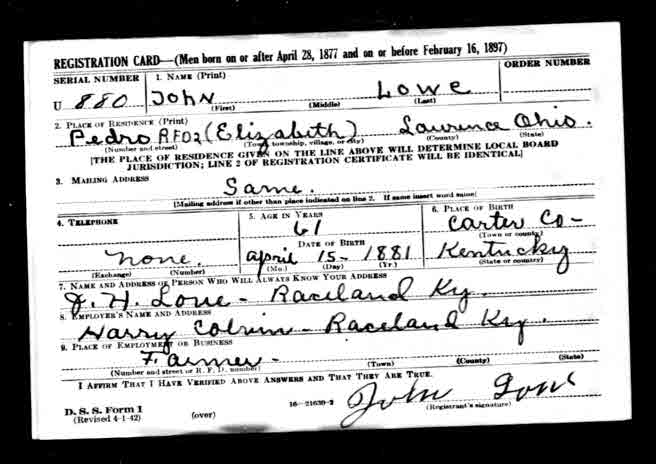 REGISTRATION CARD—(Men born on or after April 28, 1877 and on or before February 16, 1897)
SERIAL NUMBER 1. NAME (Print) ORDER NUMBER
U 880 JOHN LOWE
(First) (Middle) (Last)
2. PLACE OF RESIDENCE (Print)
Pedro RFD2 (Elizabeth) Lawrence Ohio.
(Number and street) (Town, township, village, or city) (County) (State)
[THE PLACE OF RESIDENCE GIVEN ON THE LINE ABOVE WILL DETERMINE LOCAL BOARD
JURISDICTION; LINE 2 OF REGISTRATION CERTIFICATE WILL BE IDENTICAL]
3. MAILING ADDRESS
Same.
[Mailing address if other than place indicated on line 2. If same insert word same]
4. TELEPHONE 5. AGE IN YEARS 6. PLACE OF BIRTH
61 Carter Co-
DATE OF BIRTH (Town or county)
none. April 15- 1881 Kentucky
(Exchange) (Number) (Mo.) (Day) (Yr.) (State or country)
7. NAME AND ADDRESS OF PERSON WHO WILL ALWAYS KNOW YOUR ADDRESS
J. H. Lowe - Raceland Ky.
8. EMPLOYER'S NAME AND ADDRESS
Harry Colvin - Raceland Ky.
9. PLACE OF EMPLOYMENT OR BUSINESS
Farmer -
(Number and street or R. F. D. number) (Town) (County) (State)
I AFFIRM THAT I HAVE VERIFIED ABOVE ANSWERS AND THAT THEY ARE TRUE.
D. S. S. Form 1 16—21630-2 John Lowe
(Revised 4-1-42) (over) (Registrant's signature)